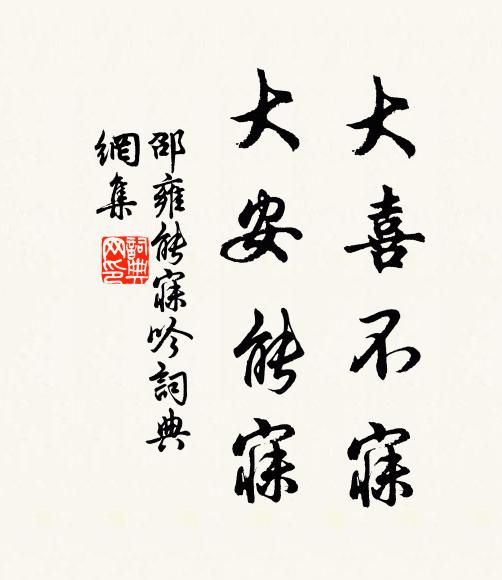 大喜不寐
大安能寐
邵雍能寐吟詞典
網集
詞典
网印